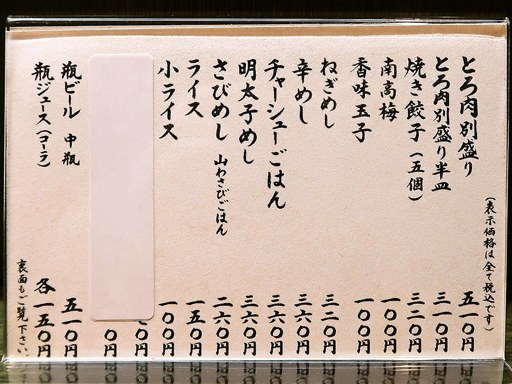 (表示価格は全て税込です)
とろ肉別盛り 五一〇円
とろ肉別盛り半皿 三一〇円
焼き餃子(五個) 三二〇円
南高梅 一〇〇円
香味玉子 一〇〇円
ねぎめし 三二〇円
辛めし 三六〇円
チャーシューごはん 三六〇円
明太子めし 三六〇円
さびめし 山わさびごはん 二六〇円
ライス 一五〇円
小ライス 一〇〇円
〇円
〇円
瓶ビール 中瓶 五一〇円
瓶ジュース(コーラ) 各一五〇円
裏面もご覧下さい。